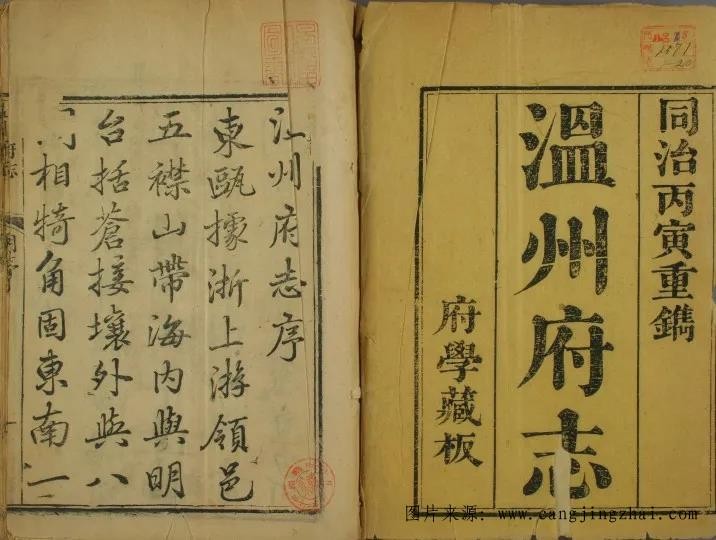 同治丙寅重鐫
溫州府志
府學藏板
州府志序
東甌據浙上游領邑
五襟山帶海內與明
台括蒼接壤外與八
相犄角固東南一
图片来源：www.cangjingzhai.com